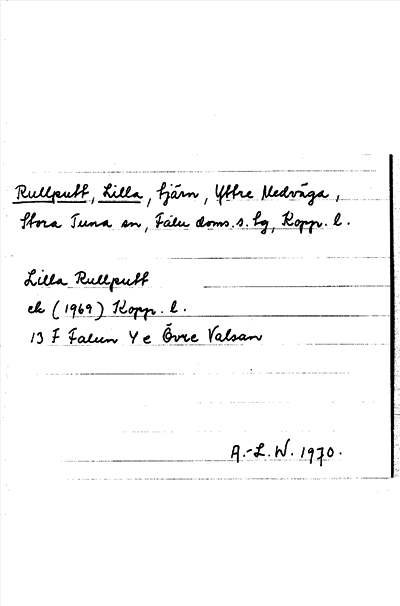 Rullputt, Lilla, tjärn, Yttre Medväga,
Stora Tuna sn, Falu doms. s. tg, Kopp. l.
Lilla Rullputt
ek (1969) Kopp. l.
13 F Falun Y e Övre Valsan
A.-L. W. 1970.